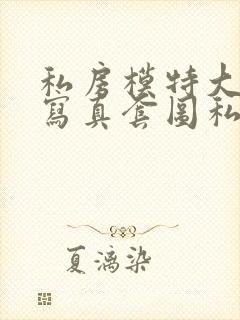 私房模特大
寫真套圖私
夏漓染